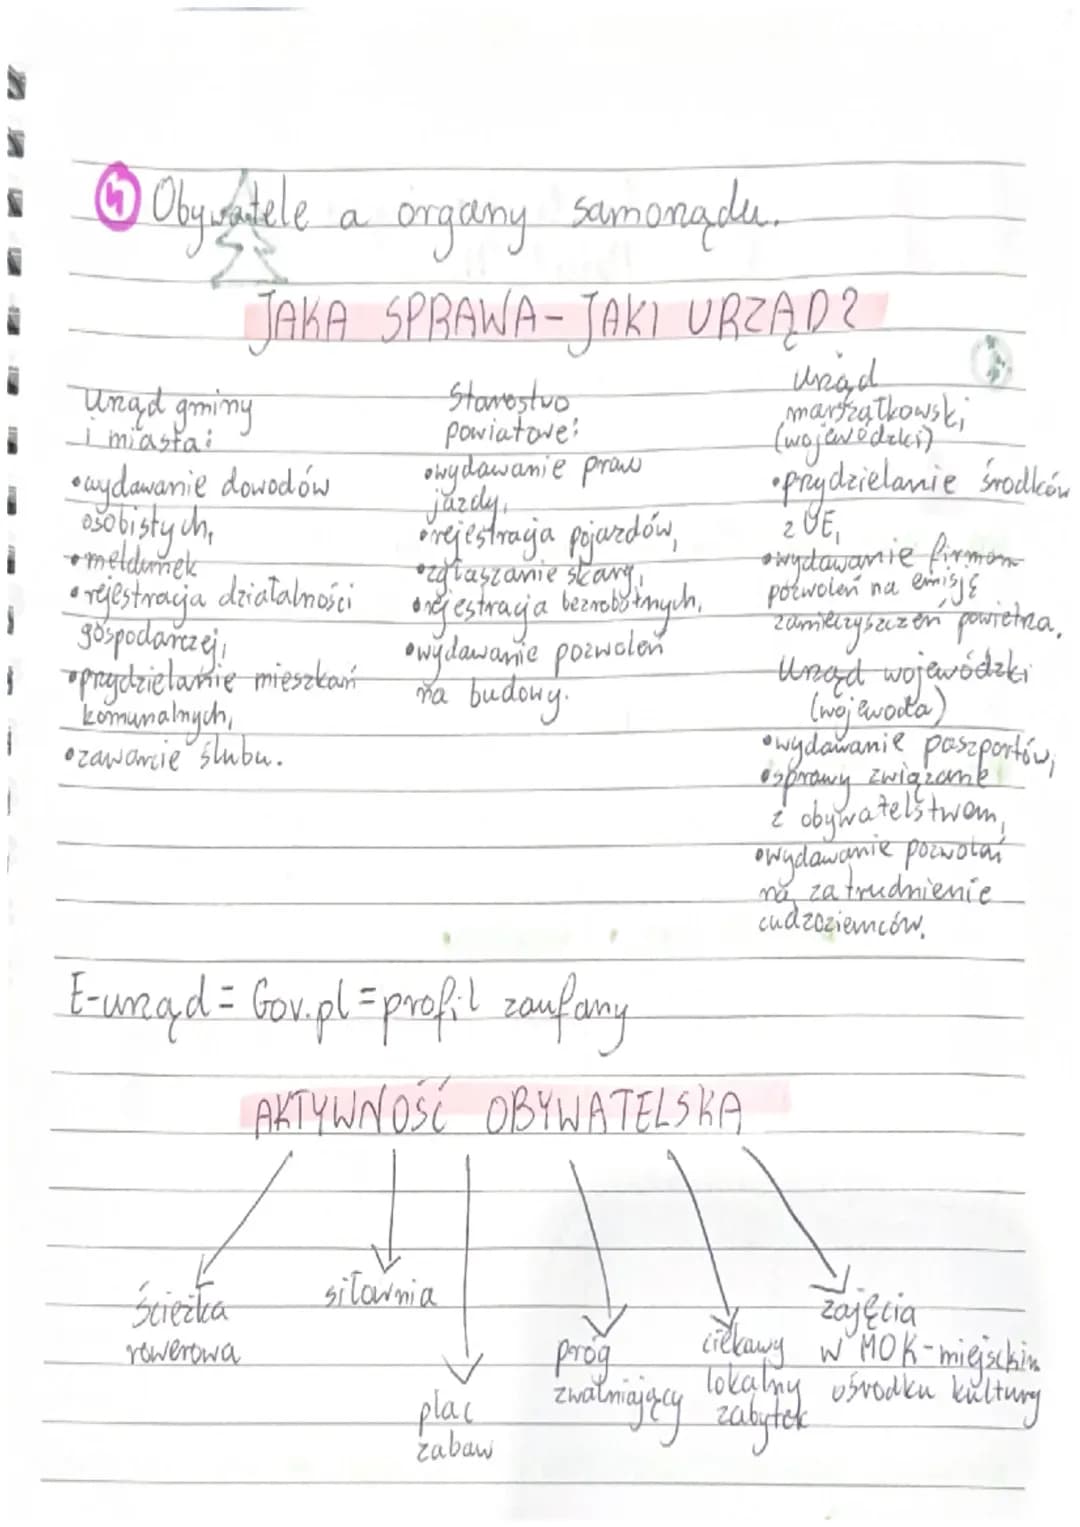 4 Obywatele a organy samorządu.
JAKA SPRAWA-JAKI URZĄD?
Urząd gminy
i miasta:
•wydawanie dowodów
osobistych,
•meldunek
•rejestracja działalności
gospodarczej,
•przydzielanie mieszkań
komunalnych,
•zawarcie ślubu.
Starostwo
powiatowe:
•wydawanie praw
jazdy,
•rejestracja pojazdów,
•zgłaszanie skarg,
•rejestracja bezrobotnych,
•wydawanie pozwoleń
na budowy.
Urząd
marszątkowski
(wojewódzki)
•przydzielanie środków
z UE,
•wydawanie firmom
pozwoleń na emisję
zanieczyszczeń powietrza.
Urząd wojewódzki
(wojewoda)
•wydawanie paszportów,
•sprawy związane
z obywatelstwem,
•wydawanie pozwoleń
na zatrudnienie
cudzoziemców.
E-urząd = Gov.pl = profil zaufany
AKTYWNOŚĆ OBYWATELSKA
ścieżka
rowerowa
siłownia
plac
zabaw
próg
zwalniający
ciekawy
lokalny
zabytek
zajęcia
w MOK-miejskim
ośrodku kultury